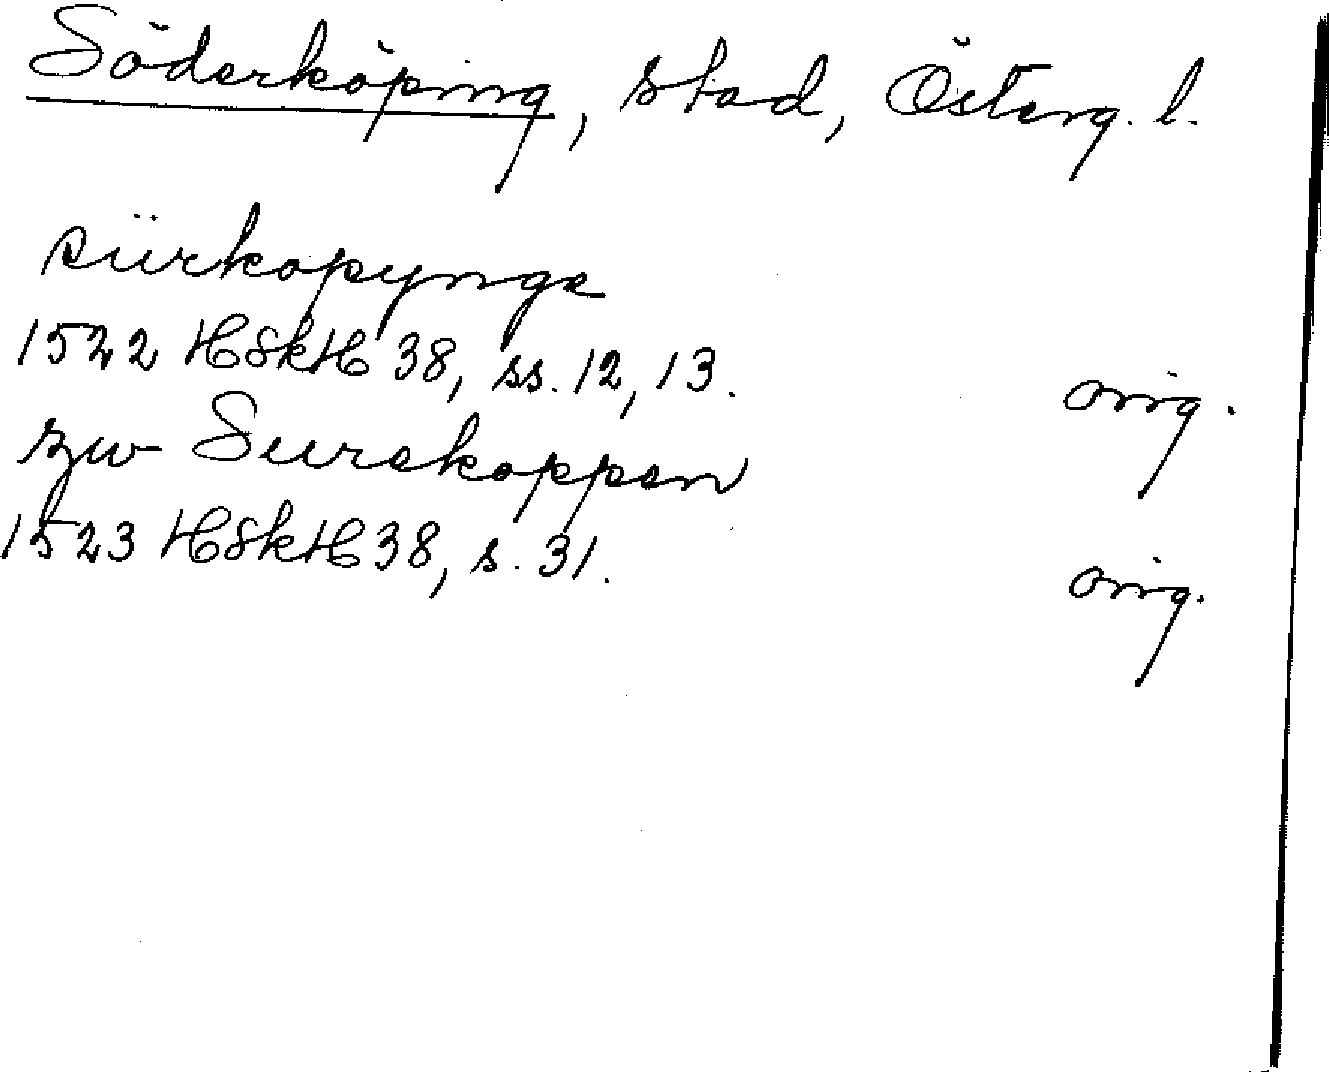 Söderköping, stad, Österg. l.
sürkopynge
1522 HSkH 38, ss. 12, 13. orig.
zw Surekoppen
1523 HSkH 38, s. 31. orig.